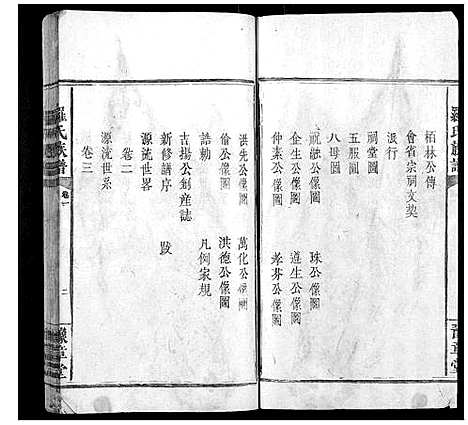 羅氏族譜
豫章堂
栢林公傳
會省宗祠文契
派行
祠堂圖
五服圖
八母圖
祝融公像圖 珠公像圖
企生公像圖 遵生公像圖
仲素公像圖 孝芬公像圖
洪先公像圖 萬化公像圖
倫公像圖 洪德公像圖
誥勅 凡例家規
吉揚公創産誌
新修譜序 跋
源流世畧
卷二
源流世系
卷三
羅氏族譜 卷一 二 豫章堂